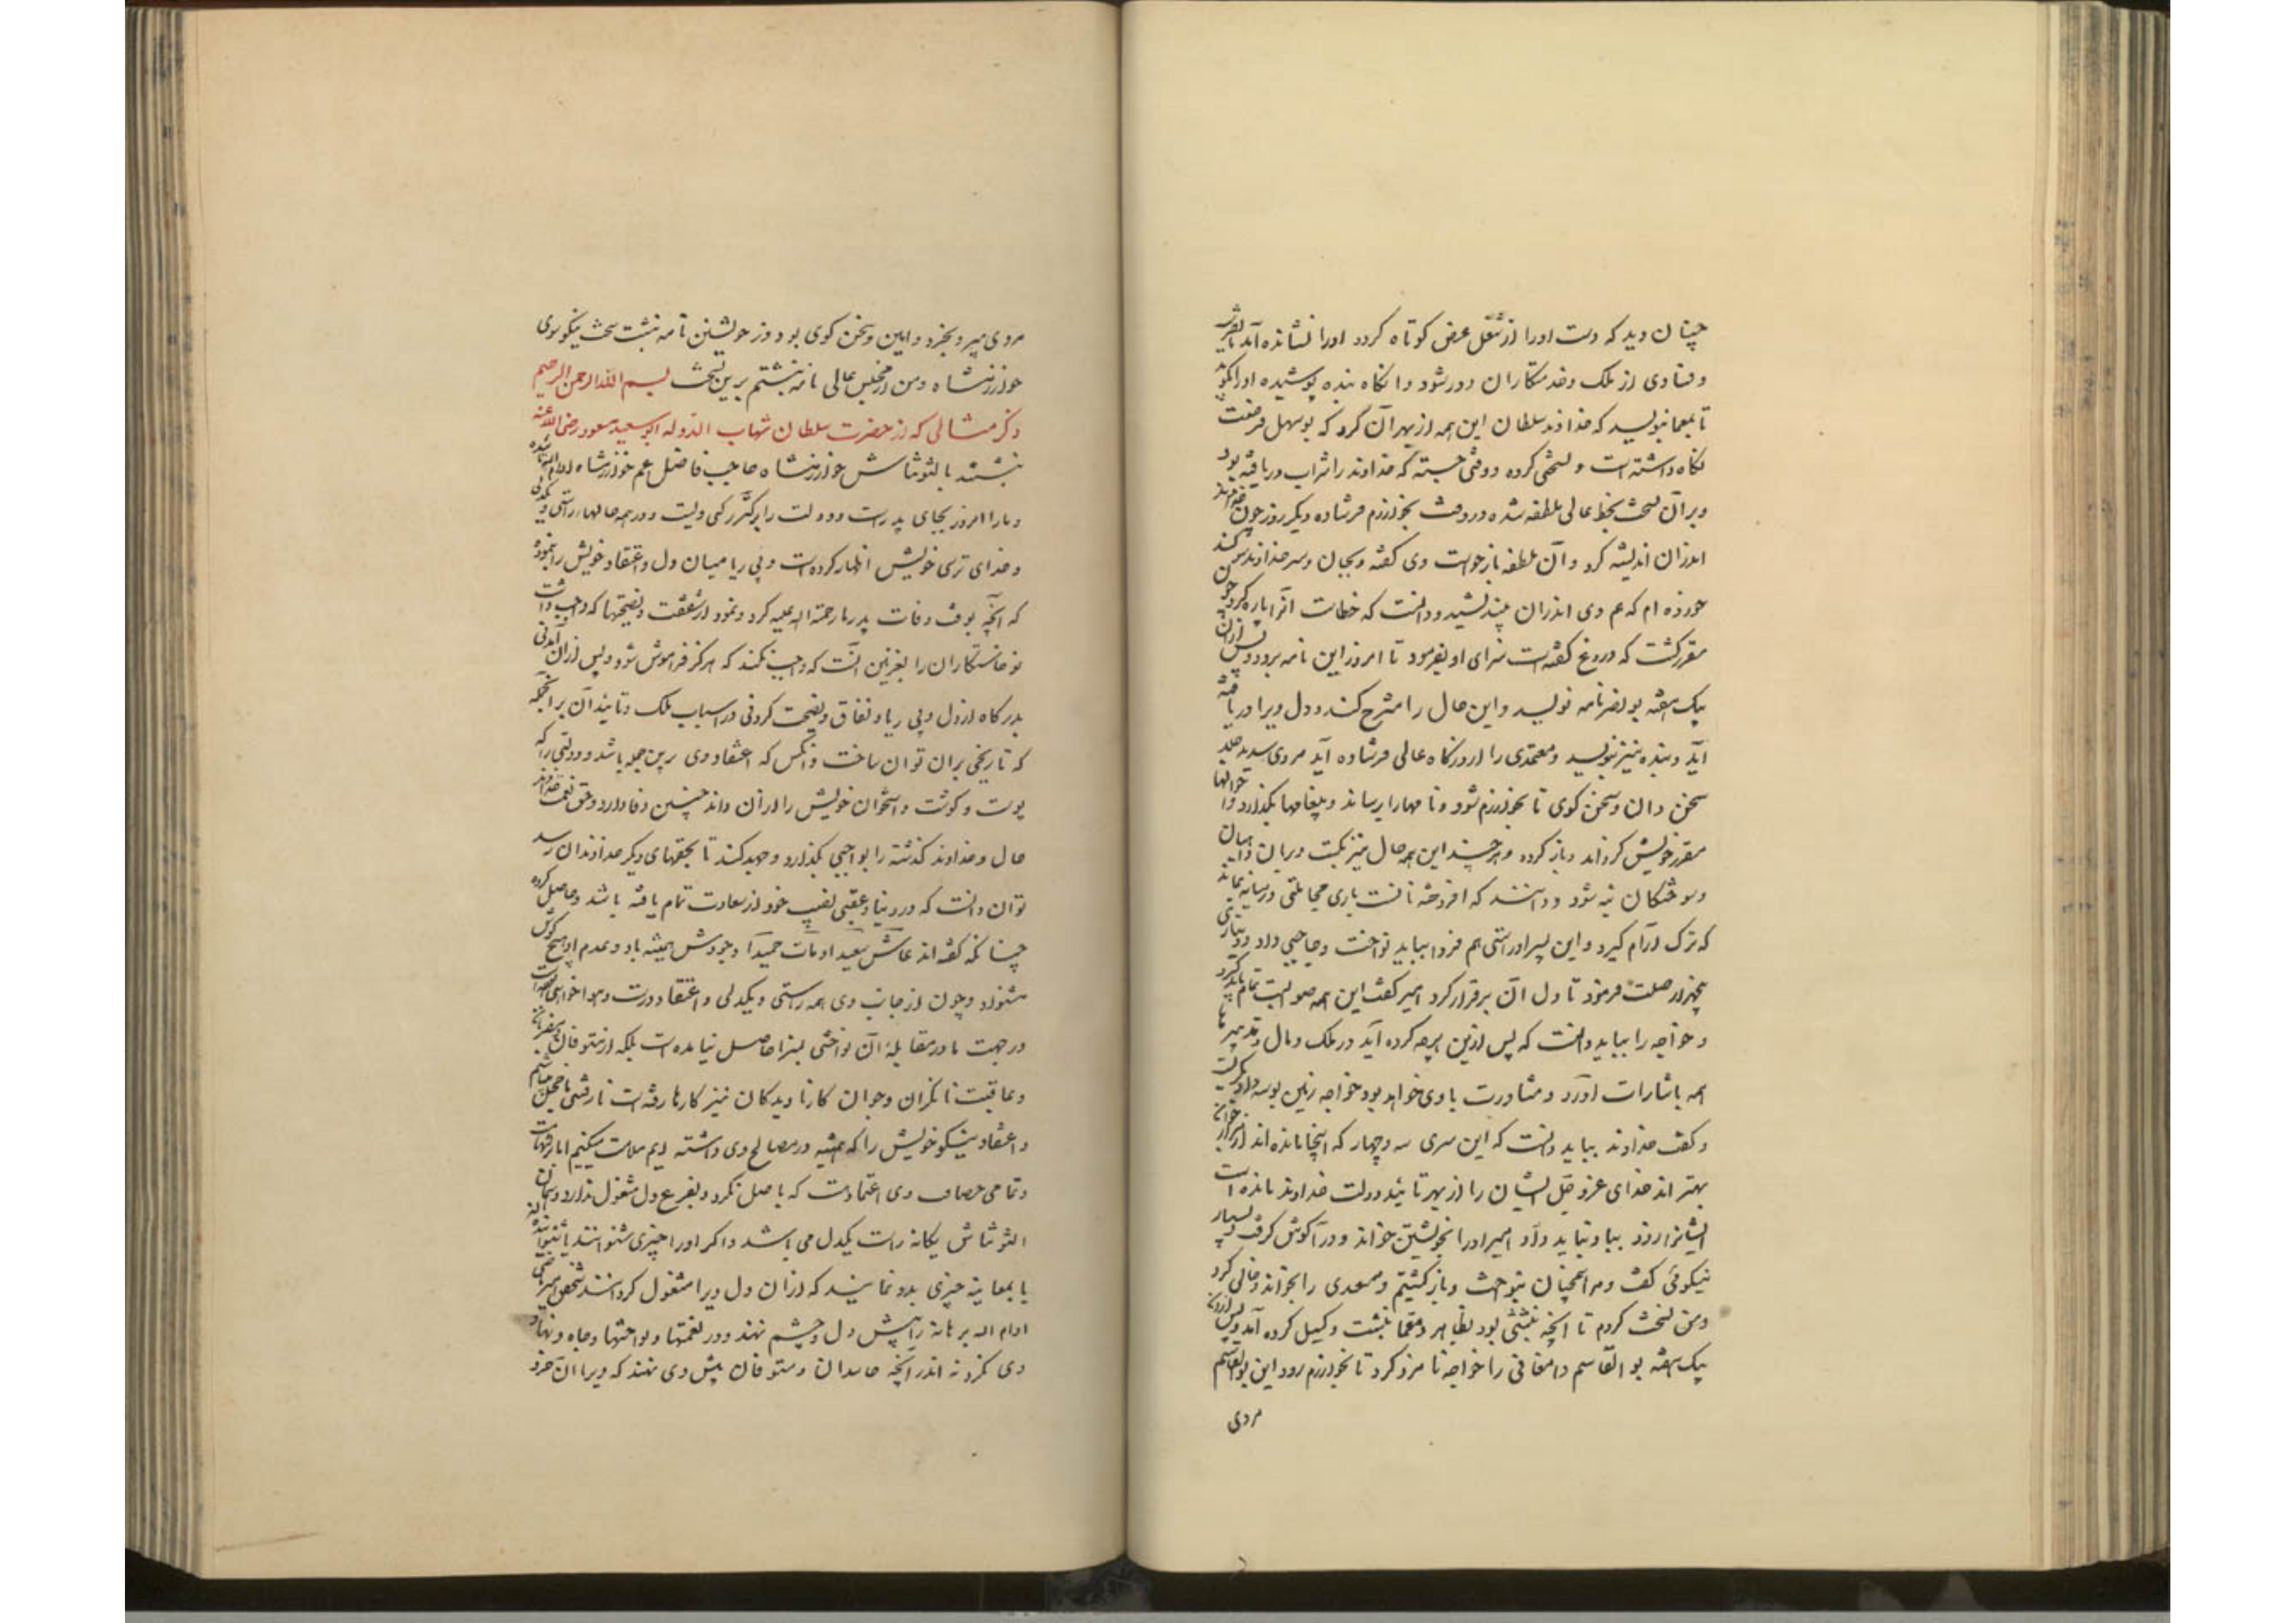 چنان دید که دست اورا از شغل عرض کوتاه کردد اورا نشانده آید
و فسادی از ملک و خدمتکاران دور شود و انکاه بنده پوشیده اورا بگوید
تا بمعما بنویسد که خداوند سلطان این همه از بهر آن کرد که بوسهل فرصت
نکاه داشته است و نسختی کرده و وقتی جسته که خداوند را شراب دریافته بود
و بر آن نسخت بخط عالی ملطفه شده و در وقت بخوارزم فرستاده و دیکر روز چون خداوند
اندر آن اندیشه کرد و آن ملطفه بازخواست وی کفته و بجان و سر خداوند سوکند
خورده ام که هم وی اندران بیندیشید و دانست که خطاست آنرا پاره کرد چون
مقرر کشت که دروغ کفته است سزای او بفرمود تا امروز این نامه برود و پس از آن
بیک هفته بو نصر نامه نویسد و این حال را مشرح کند و دل ویرا دریافته
آید و بنده نیز بنویسد و معتمدی را از درکاه عالی فرستاده آید مردی سدید جلد
سخن دان و سخن کوی تا بخوارزم شود و نامهارا برساند و پیغامها بکذارد و حالها
مقرر خویش کرداند و باز کردد و هر چند این همه حال نیرنکست و بر آن داهیان
و سوختکان نه شود و دانند که افروخته نانست باری مجاملتی در میانه بماند
که ترک آرام کیرد و این پسر او ستی هم فردا بباید نواخت و حاجبی داد و دیناری
پنجهزار صلت فرمود تا دل آن برقرار کرد امیر کفت این همه صوابست تمام باید کرد
و خواجه را بباید دانست که پس ازین هرچه کرده آید در ملک و مال و تدبیر ما
همه باشارات او رود و مشاورت با وی خواهد بود خواجه زمین بوسه داد و بکریست
و کفت خداوند بباید دانست که این سری سه و چهار که اینجا مانده اند از هزار جوان
بهتر اند خدای عز و جل ایشان را از بهر تائید دولت خداوند مانده است
ایشانرا زود بباد نباید داد امیر اورا بخویشتن خواند و در آکوش کرفت و بسیار
نیکوئی کفت و مرا همچنان بنواخت و بازکشتیم و مسعدی را بخواند و خالی کرد
و من نسخت کردم تا آنچه نبشتنی بود بظاهر و معما نبشت و کسیل کرده آمد و پس از آن
بیک هفته بو القاسم دامغانی را خواجه نامزد کرد تا بخوارزم رود این بوالقاسم
مردی
مردی پیر و بخرد و امین و سخن کوی بود و از خویشتن نامه نبشت سخت نیکو سوی
خوارزمشاه و من از مجلس عالی نامه نبشتم برین نسخت بسم الله الرحمن الرحیم
ذکر مثالی که از حضرت سلطان شهاب الدوله ابو سعید مسعود رضی الله عنه
نبشتند با لتونتاش خوارزمشاه حاجب فاضل عم خوارزمشاه ادام الله تائیده
و مارا امروز بجای پدر است و دولت را بزرکتر رکنی ویست و در همه حالها راستی و یکدلی
و خدای ترسی خویش اظهار کرده است و بی ریا میان دل و اعتقاد خویش را بنموده
که آنچه بوقت وفات پدر ما رحمة الله علیه کرد و نمود از شفقت و نصیحتها که واجب داشت
نو خاستکاران را بغزنین آنست که واجب نکند که هرکز فراموش شود و پس از آن آمدنی
بدرکاه از دل و بی ریا و نفاق و نصیحت کردنی در اسباب ملک و تایید آن بر آنجمله
که تاریخی بر آن توان ساخت و آنکس که اعتقاد وی برین جمله باشد و دولتی را که
پوست و کوشت و استخوان خویش را از آن داند چنین وفا دارد و حق نعمت خداوند
حال و خداوند کذشته را بواجبی بکذارد و جهد کند تا بحقهای دیکر خداوندان رسد
توان دانست که در دنیا و عقبی نصیب خود از سعادت تمام یافته باشد و حاصل کرده
چنانکه کفته اند عاش سعیدا و مات حمیدا وجودش همیشه باد و عدم او هیچ کوش
مشنواد و چون از جانب وی همه راستی و یکدلی و اعتقاد درست و هوا خواهی است
و در جهت ما در مقابله آن نواختی بسزا حاصل نیامده است بلکه از متسوقان و مضربان
و عاقبت نانکران و جوان کارنادیدکان نیز کارها رفته است نارفتنی ما خجل میباشیم
و اعتقاد نیکو خویش را که همیشه در مصالح وی داشته ایم ملامت میکنیم اما
و تمامی حصافت وی اعتمادست که باصل نکرد و بفرع دل مشغول ندارد و همان
التونتاش یکانه راست یکدل می باشد و اکر اورا چیزی شنوانند یا شنوانیده
یا بمعاینه چیزی بدو نمایند که از آن دل ویرا مشغول کردانند شخص امیر ماضی
ادام الله برهانه را پیش دل و چشم نهند و در نعمتها و نواختها و جاه و نهاد
وی نکرد نه اندر آنچه حاسدان و متسوقان پیش وی نهند که ویرا آن خرد